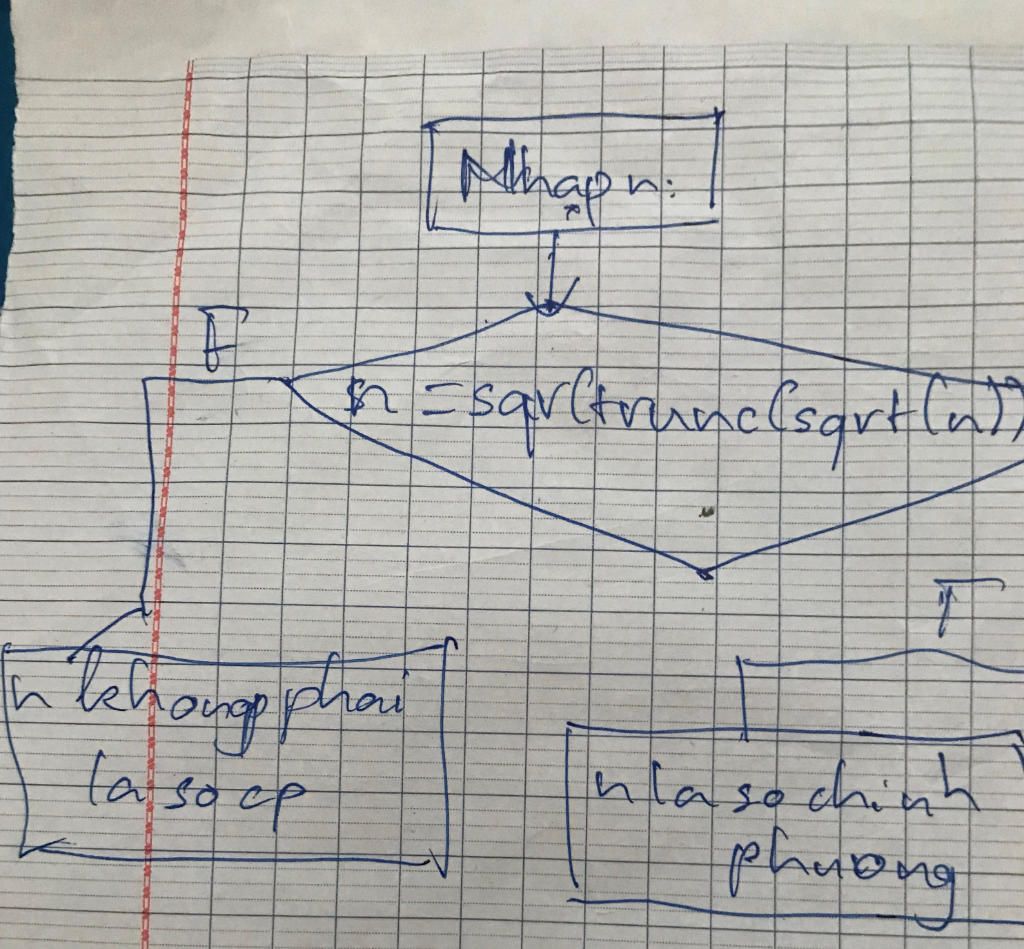 Nhap n:
F
n = sqr(trunc(sqrt(n))
T
n khong phai
la so cp
n la so chinh
phuong